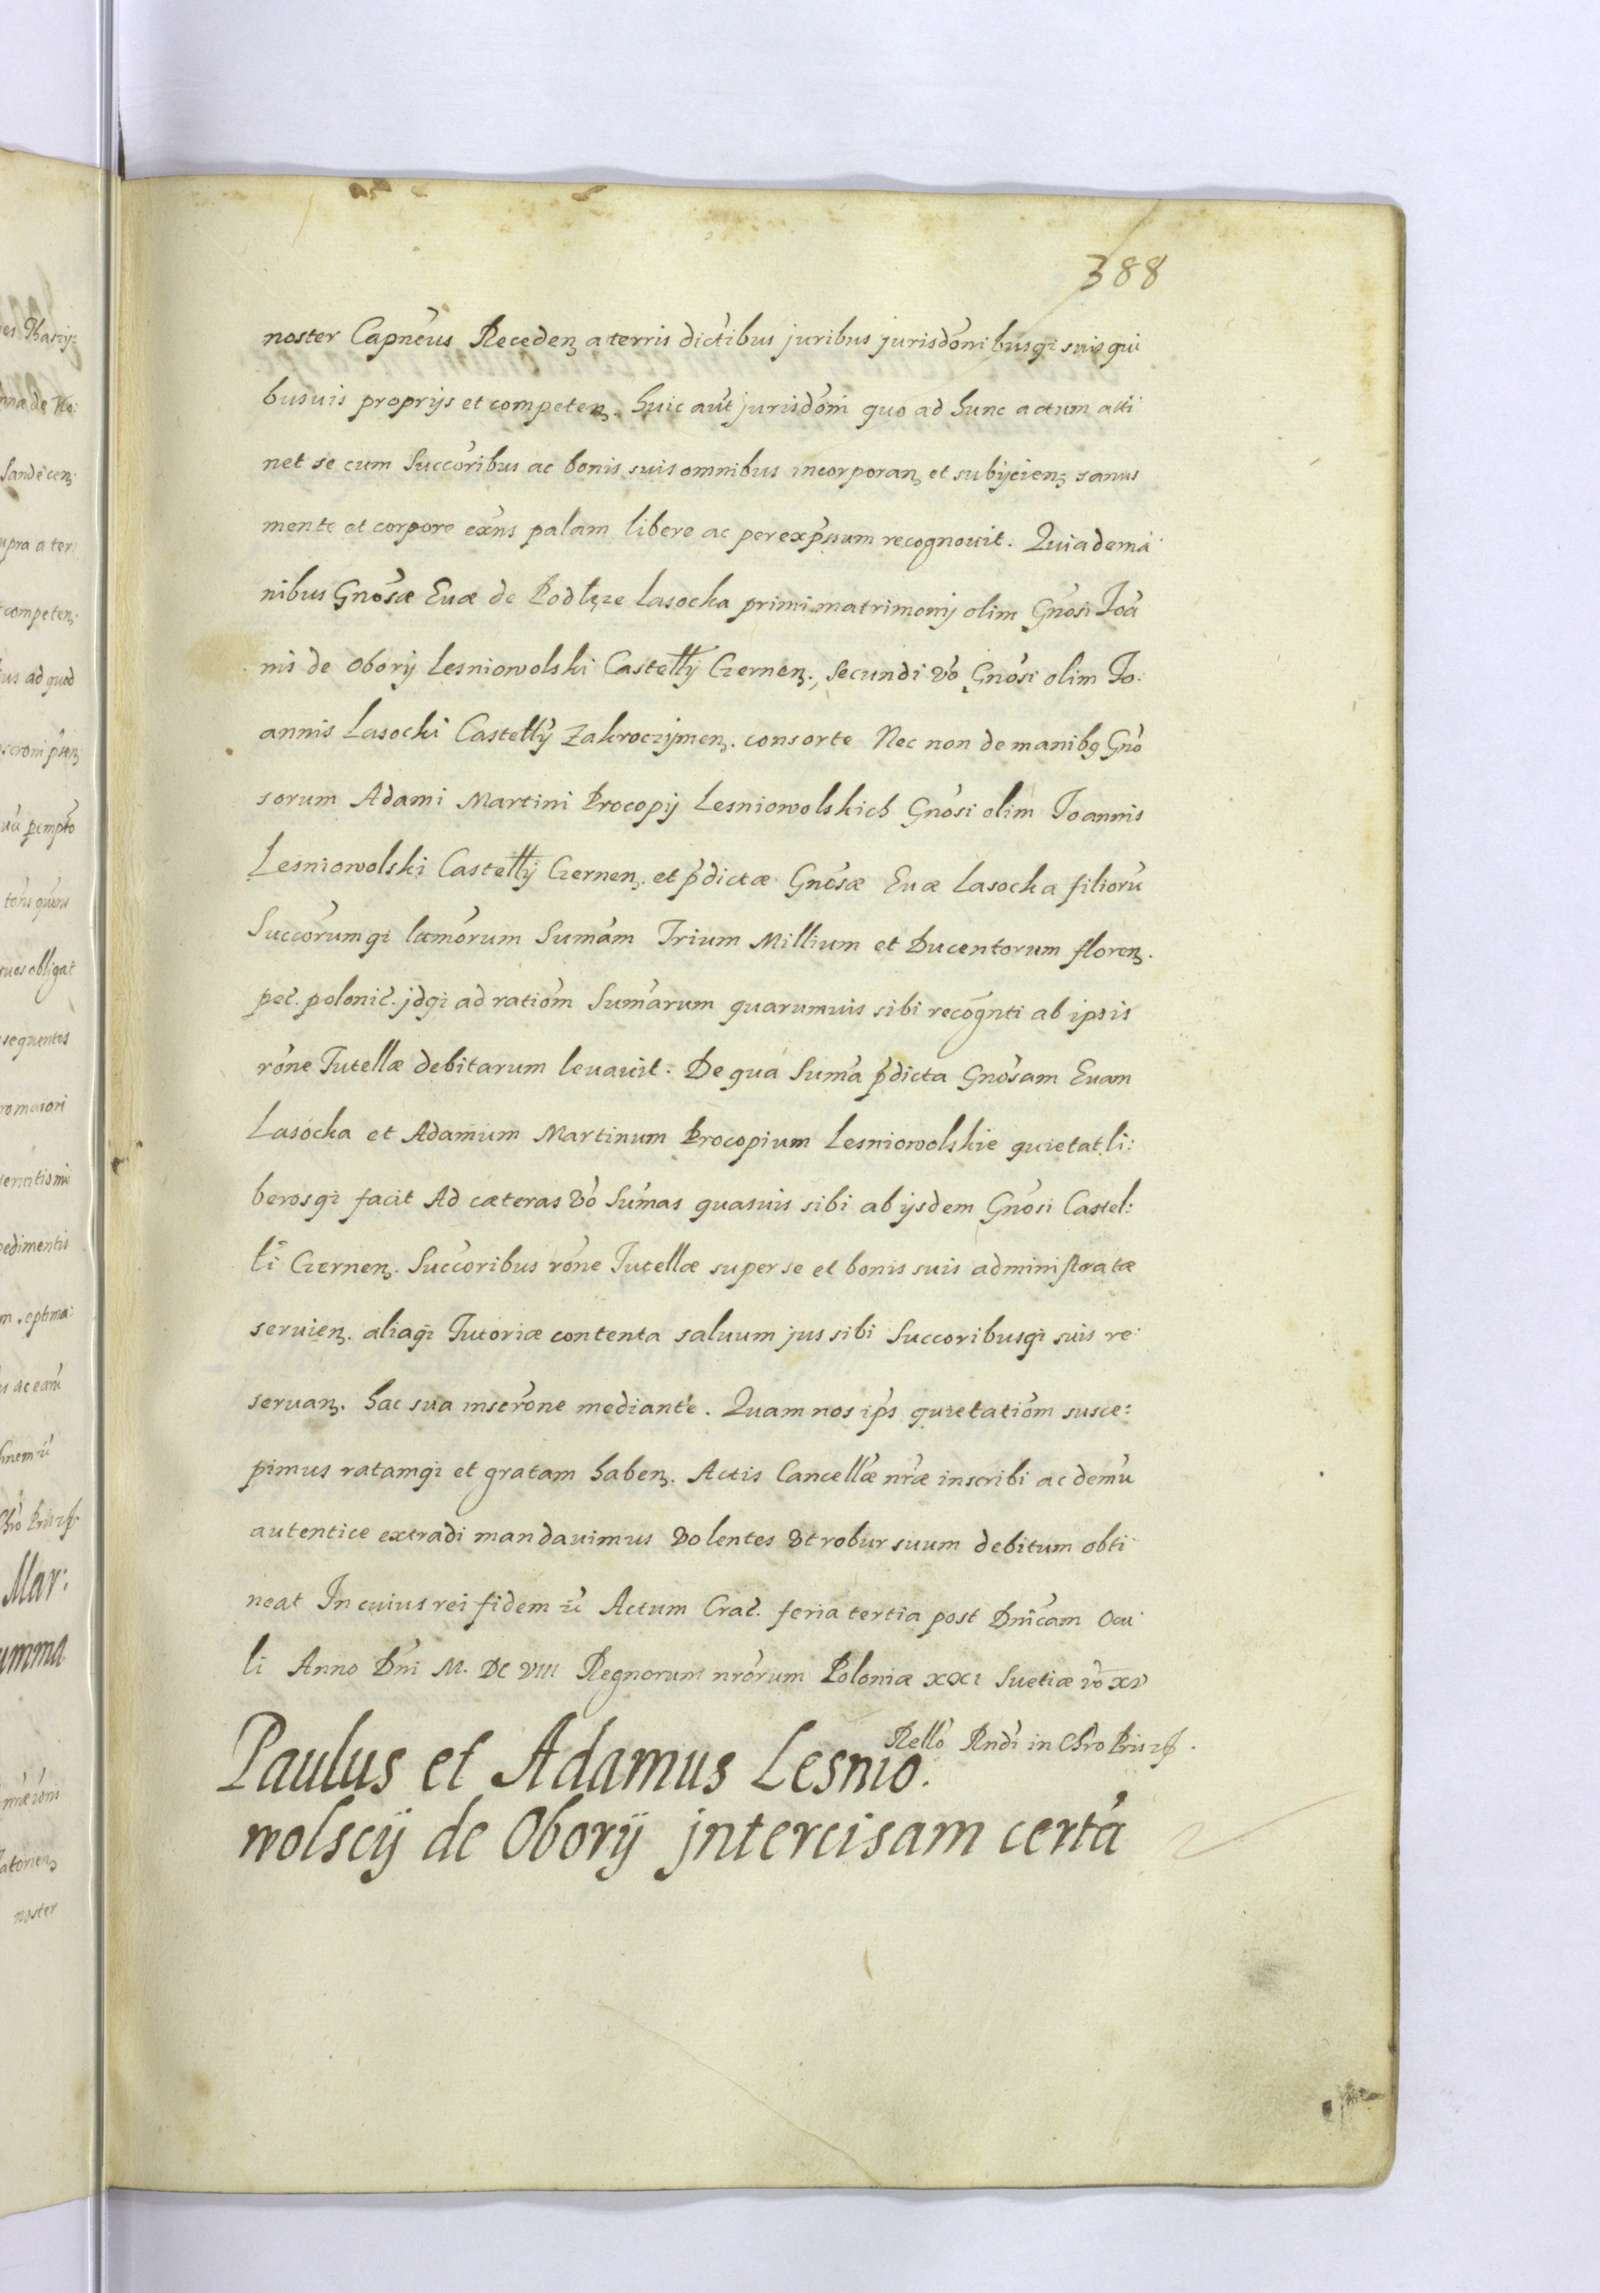 388
noster Capnēus Recedenȝ a terris dictibus juribus jurisdōnibusqȝ suis qui
busuis proprijs et competenȝ. Huic aūt jurisdōni quo ad hunc actum atti
net se cum Succōribus ac bonis suis omnibus incorporanȝ et subijcienȝ sanus
mente et corpore exñs palam libere ac per exp̄ssum recognouit. Quia de ma
nibus Gnōsæ Euæ de Podłęze Lasocka primi matrimonij olim Gnōsi Joā
nis de Oborÿ Lesniowolski Castellÿ Czernenȝ., Secundi vō Gnōsi olim Jo:
annis Lasocki Castellÿ Zakroczÿmenȝ. consorte Nec non de manibȝ Gnō
sorum Adami Martini Procopij Lesniowolskich Gnōsi olim Joannis
Lesniowolski Castellÿ Czernenȝ. et p̄dictæ Gnōsæ Euæ Lasocka filiorū
Succōrumqȝ lᴇmōrum Sumām Trium Millium et Ducentorum florenȝ.
pec̄. polonic̄. jdqȝ ad ratiōm Sumārum quarumuis sibi recōgnti ab ipsis
rōne Tutellæ debitarum leuauit: De quá Sumā p̄dicta Gnōsam Euam
Lasocka et Adamum Martinum Procopium Lesniowolskie quietat li:
berosqȝ facit Ad cæteras vō Sumās quasuis sibi ab ijsdem Gnōsi Castel:
lī Czernenȝ. Succōribus rōne Tutellæ super se et bonis suis administratæ
seruienȝ. aliaqȝ Tutoriæ contenta saluum jus sibi Succoribusqȝ suis re
seruanȝ. hac sua inscrōne mediante. Quam nos ip̄s quietatiōm susce:
pimus ratamqȝ et gratam habenȝ. Actis Cancellæ nr̄æ inscribi ac demū
autentice extradi mandauimus volentes vt robur suum debitum obti
neat In cuius rei fidem ɀc̄ Actum Crac̄. feria tertia post Dnīcam Ocu
li Anno Dn̄i M. DC VIII Regnorum nrōrum Poloniæ XXI Suetiæ vō XV
Rellō Rndī in Chrō Pris ɀp.
Paulus et Adamus Lesnio.
wolscÿ de Oborÿ jntercisam certā